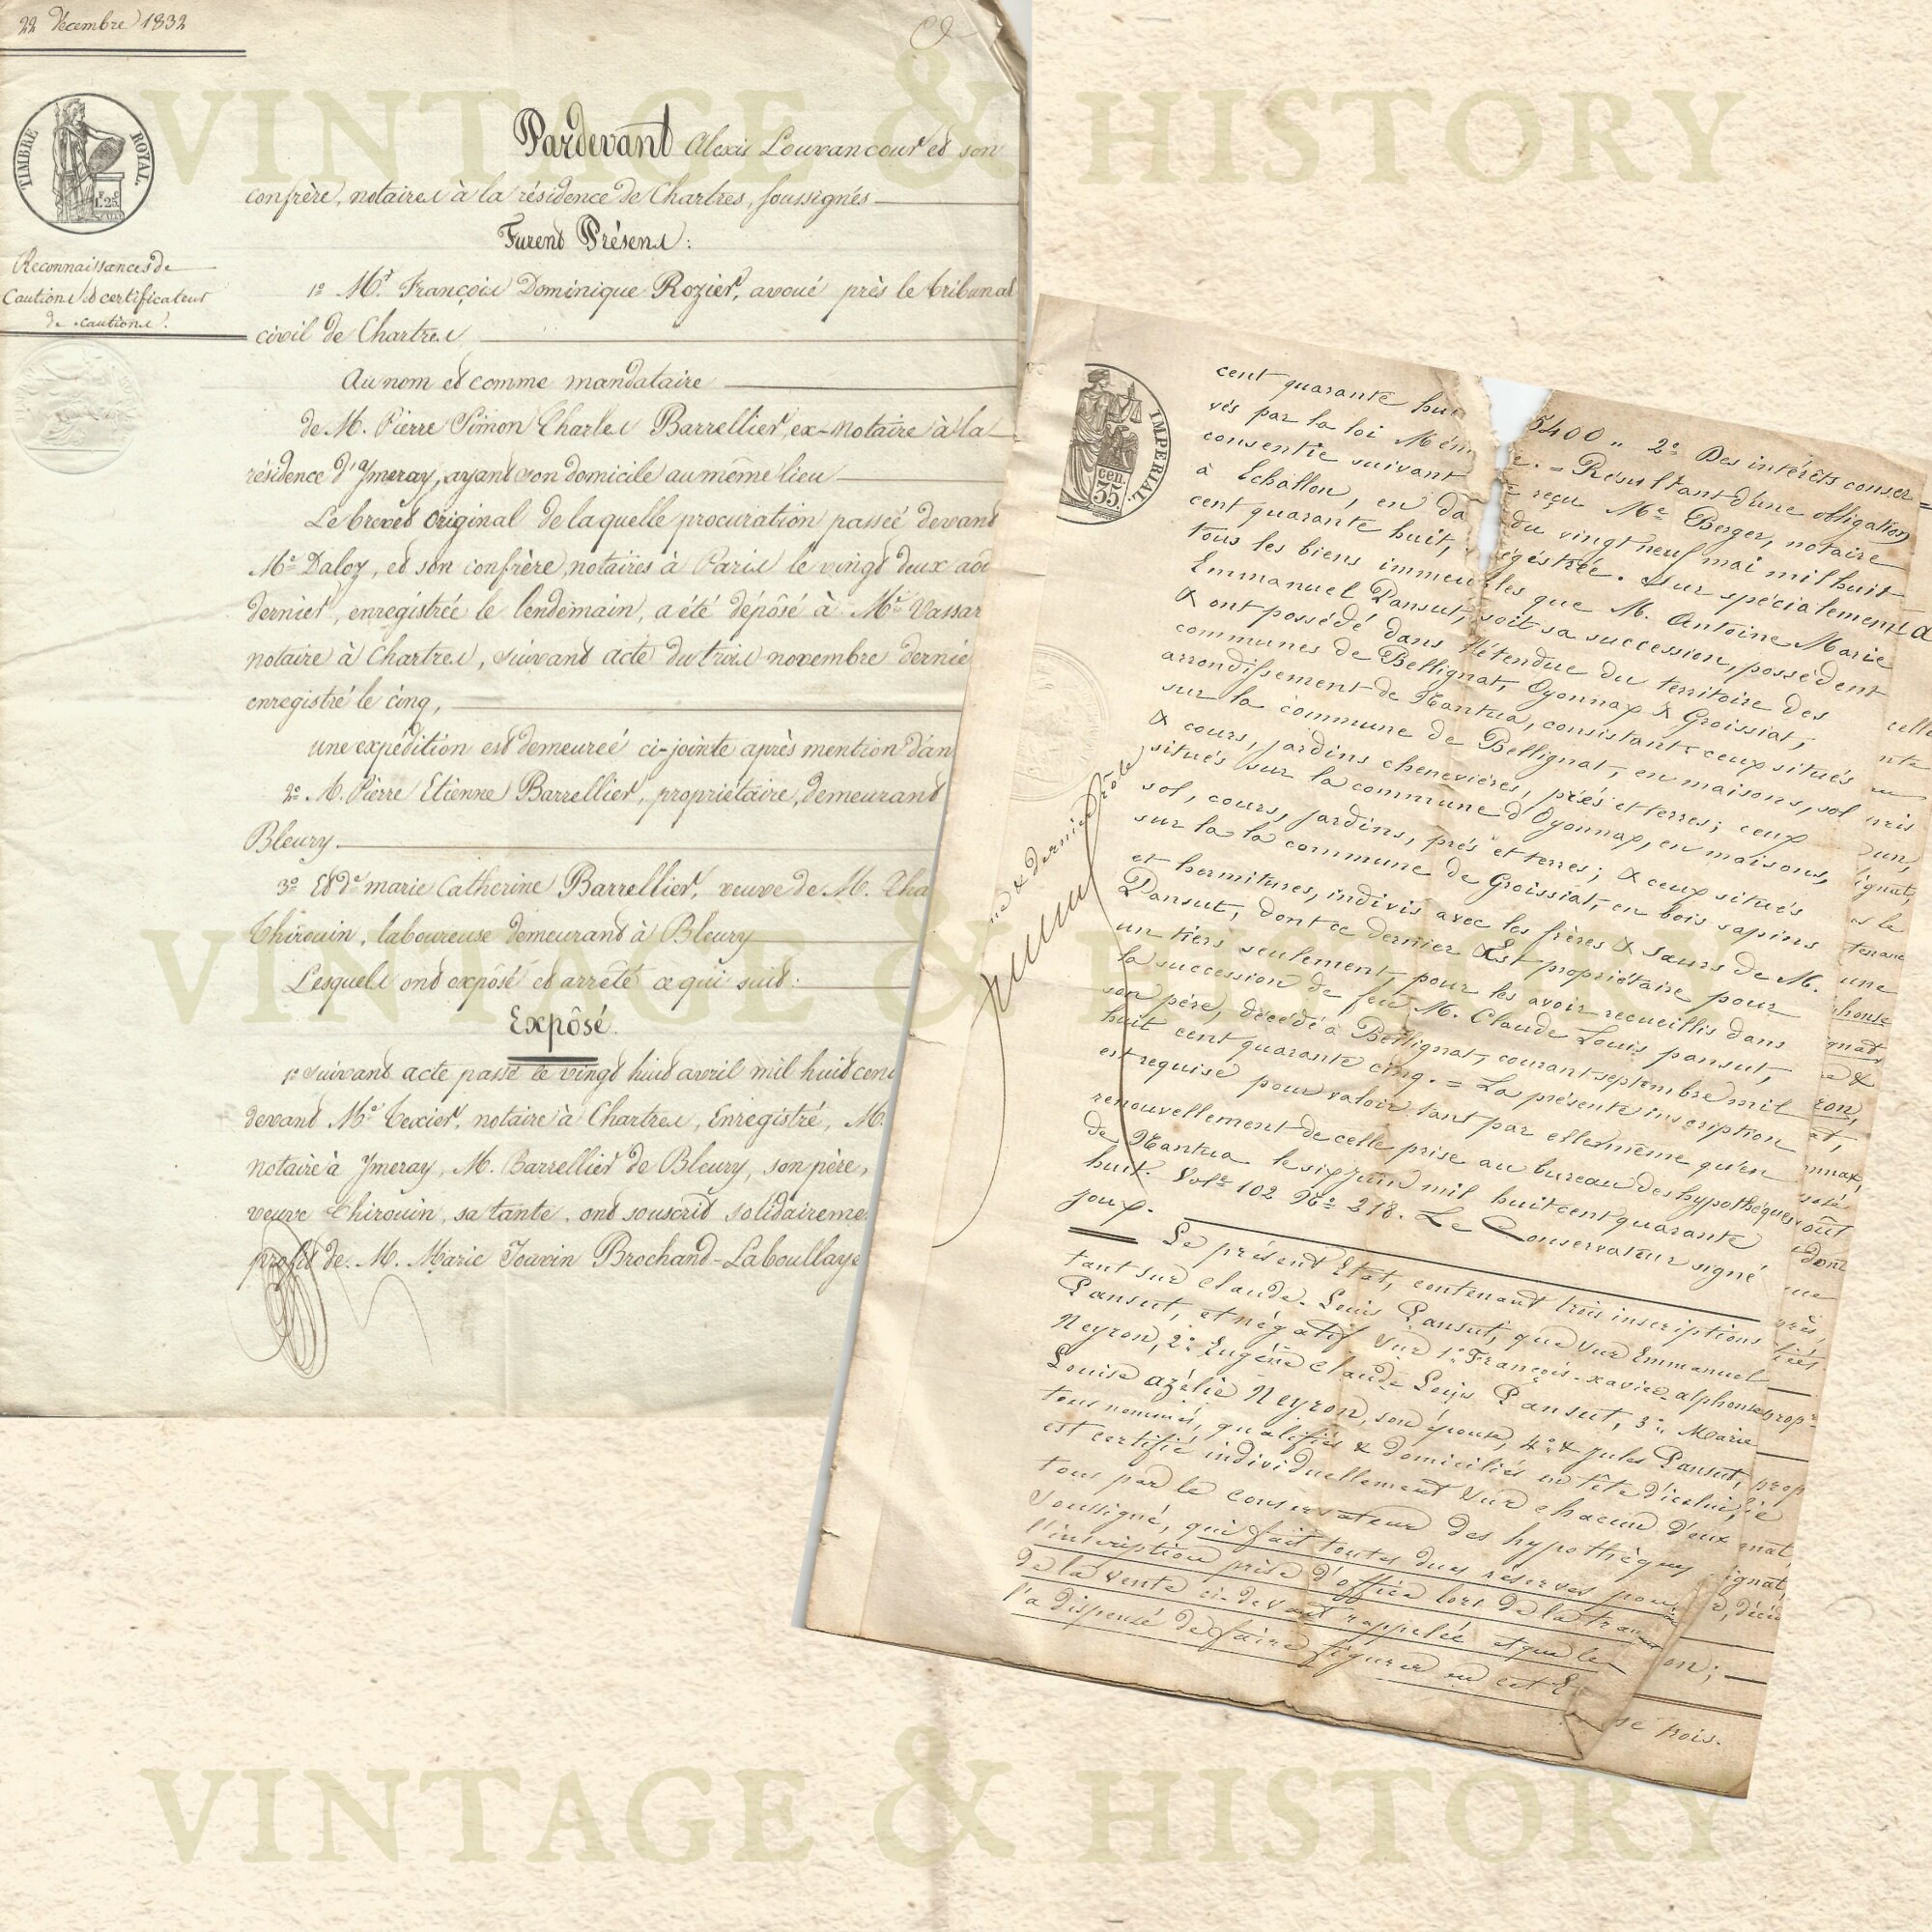 VINTAGE & HISTORY
22 Décembre 1832
TIMBRE ROYAL.
F. C
1.25
Reconnaissances de
Cautions et certificateur
de cautions.
Pardevant Alexis Louvancour et son
confrère, notaires à la résidence de Chartres, soussignés
Furent Présens:
1º Mr. François Dominique Rozier, avoué près le tribunal
civil de Chartres
Au nom et comme mandataire
de M. Pierre Simon Charles Barrellier, ex-notaire à la
résidence d'Ymeray, ayant son domicile au même lieu
Le brevet original de laquelle procuration passée devant
Me Daloz, et son confrère, notaires à Paris le vingt deux
dernier, enregistrée le lendemain, a été déposé à Me Vassar
notaire à Chartres, suivant acte du trois novembre dernie
enregistré le cinq,
une expédition est demeurée ci-jointe après mention
2º. M. Pierre Etienne Barrellier, propriétaire, demeurant
Bleury.
3º Et de marie Catherine Barrellier, veuve de M. Cha
Thirouin, laboureuse demeurant à Bleury
Lesquels ont exposé et arrêté ce qui suit:
Expôsé.
1º suivant acte passé le vingt huit avril mil huit cent
devant Me Texier, notaire à Chartres, Enregistré, M.
notaire à Ymeray, M. Barrellier de Bleury, son père,
veuve Thirouin, sa tante, ont souscrit solidaireme
profit de M. Marie Jouvin Brochand-Laboullaye
IMPERIAL.
cen. 35
cent quarante hui 5400 " 2º Des intérêts conser=
vés par la loi Mém e. = Résultant d'une obligation
consentie suivant reçu Me Berger, notaire
à Echallon, en da du vingt neuf mai mil huit
cent quarante huit, egéstrée. Sur spécialement
tous les biens immeubles que M. Antoine Marie
Emmanuel Pansut, soit sa succession, possédent
& ont possédé dans l'étendue du territoire des
communes de Bellignat, Oyonnax & Groissiat,
arrondissement de Nantua, consistant: ceux situés
sur la commune de Bellignat, en maisons, sol
& cours, jardins chenevières, prés et terres; ceux
situés sur la commune d'Oyonnax, en maisons,
sol, cours, jardins, prés et terres; & ceux situés
sur la la commune de Groissiat, en bois sapins
et hermitures, indivis avec les frères & sœurs de M.
Pansut, dont ce dernier est propriétaire pour
un tiers seulement, pour les avoir recueillis dans
la succession de feu M. Claude Louis pansut,
son père, décédé à Bellignat, courant septembre mil
huit cent quarante cinq. = La présente inscription
est requise pour valoir tant par elle même qu'en
renouvellement de celle prise au bureau des hypothèques
de Nantua le six juin mil huit cent quarante
huit. Vol. 102 No 218. Le Conservateur signé
joux.
Le présent Etat, contenant trois inscriptions
tant sur Claude-Louis Pansut, que sur Emmanuel
Pansut, et négatif sur 1º François-xavier-alphonse
Neyron, 2º Eugène Claude Louis Pansut, 3º Marie
Louise azélie Neyron, son épouse, 4º & Jules Pansut,
tous nommés, qualifiés & domiciliés en tête d'icelui,
est certifié individuellement sur chacun d'eux
tous par le conservateur des hypothèques
soussigné, qui fait toutes dues réserves pour
l'inscription prise d'office lors de la
de la vente ci-devant rappelée et que le
l'a dispensé de faire figurer en cet
& dernier rôle
VINTAGE & HISTORY
VINTAGE & HISTORY